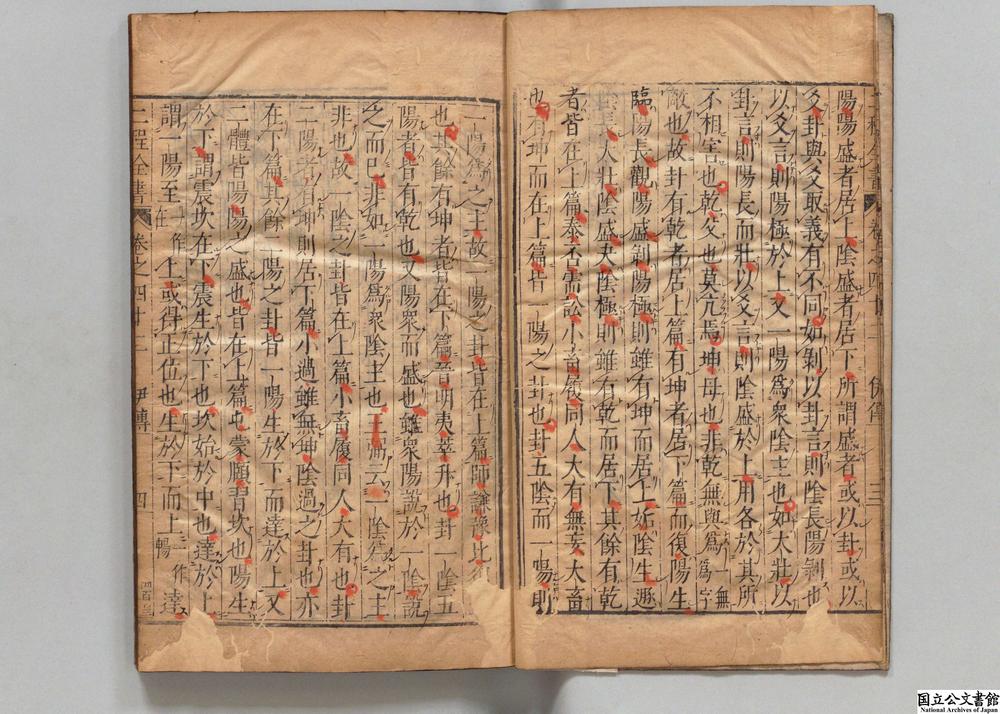 陽陽盛者居上陰盛者居下所謂盛者或以卦或以
爻卦與爻取義有不同如剝以卦言則陰長陽剝也
以爻言則陽極於上又一陽爲衆陰主也如大壯以
卦言則陽長而壯以爻言則陰盛於上用各於其所
不相害也乾父也莫亢焉坤母也非乾無與爲一無爲字
敵也故卦有乾者居上篇有坤者居下篇而復陽生
臨陽長觀陽盛剝陽極則雖有坤而居上姤陰生遯
陰長大壯陰盛夬陰極則雖有乾而居下其餘有乾
者皆在上篇泰否需訟小畜履同人大有無妄大畜
也有坤而在上篇皆一陽之卦也卦五陰而一陽則
一陽爲之主故一陽之卦皆在上篇師謙豫比復
也其餘有坤者皆在下篇晉明夷萃升也卦一陰五
陽者皆有乾也又陽衆而盛也雖衆陽說於一陰說
之而已非如一陽爲衆陰主也王弼云一陰爲之主
非也故一陰之卦皆在上篇小畜履同人大有也卦
二陽者有坤則居下篇小過雖無坤陰過之卦也亦
在下篇其餘二陽之卦皆一陽生於下而達於上又
二體皆陽陽之盛也皆在上篇屯蒙頤習坎也陽生
於下謂震坎在下震生於下也坎始於中也達於上
謂一陽至一作在上或得正位也生於下而上一作暢達
二程全書 卷之四十二 伊傳 四
国立公文書館
National Archives of Japan